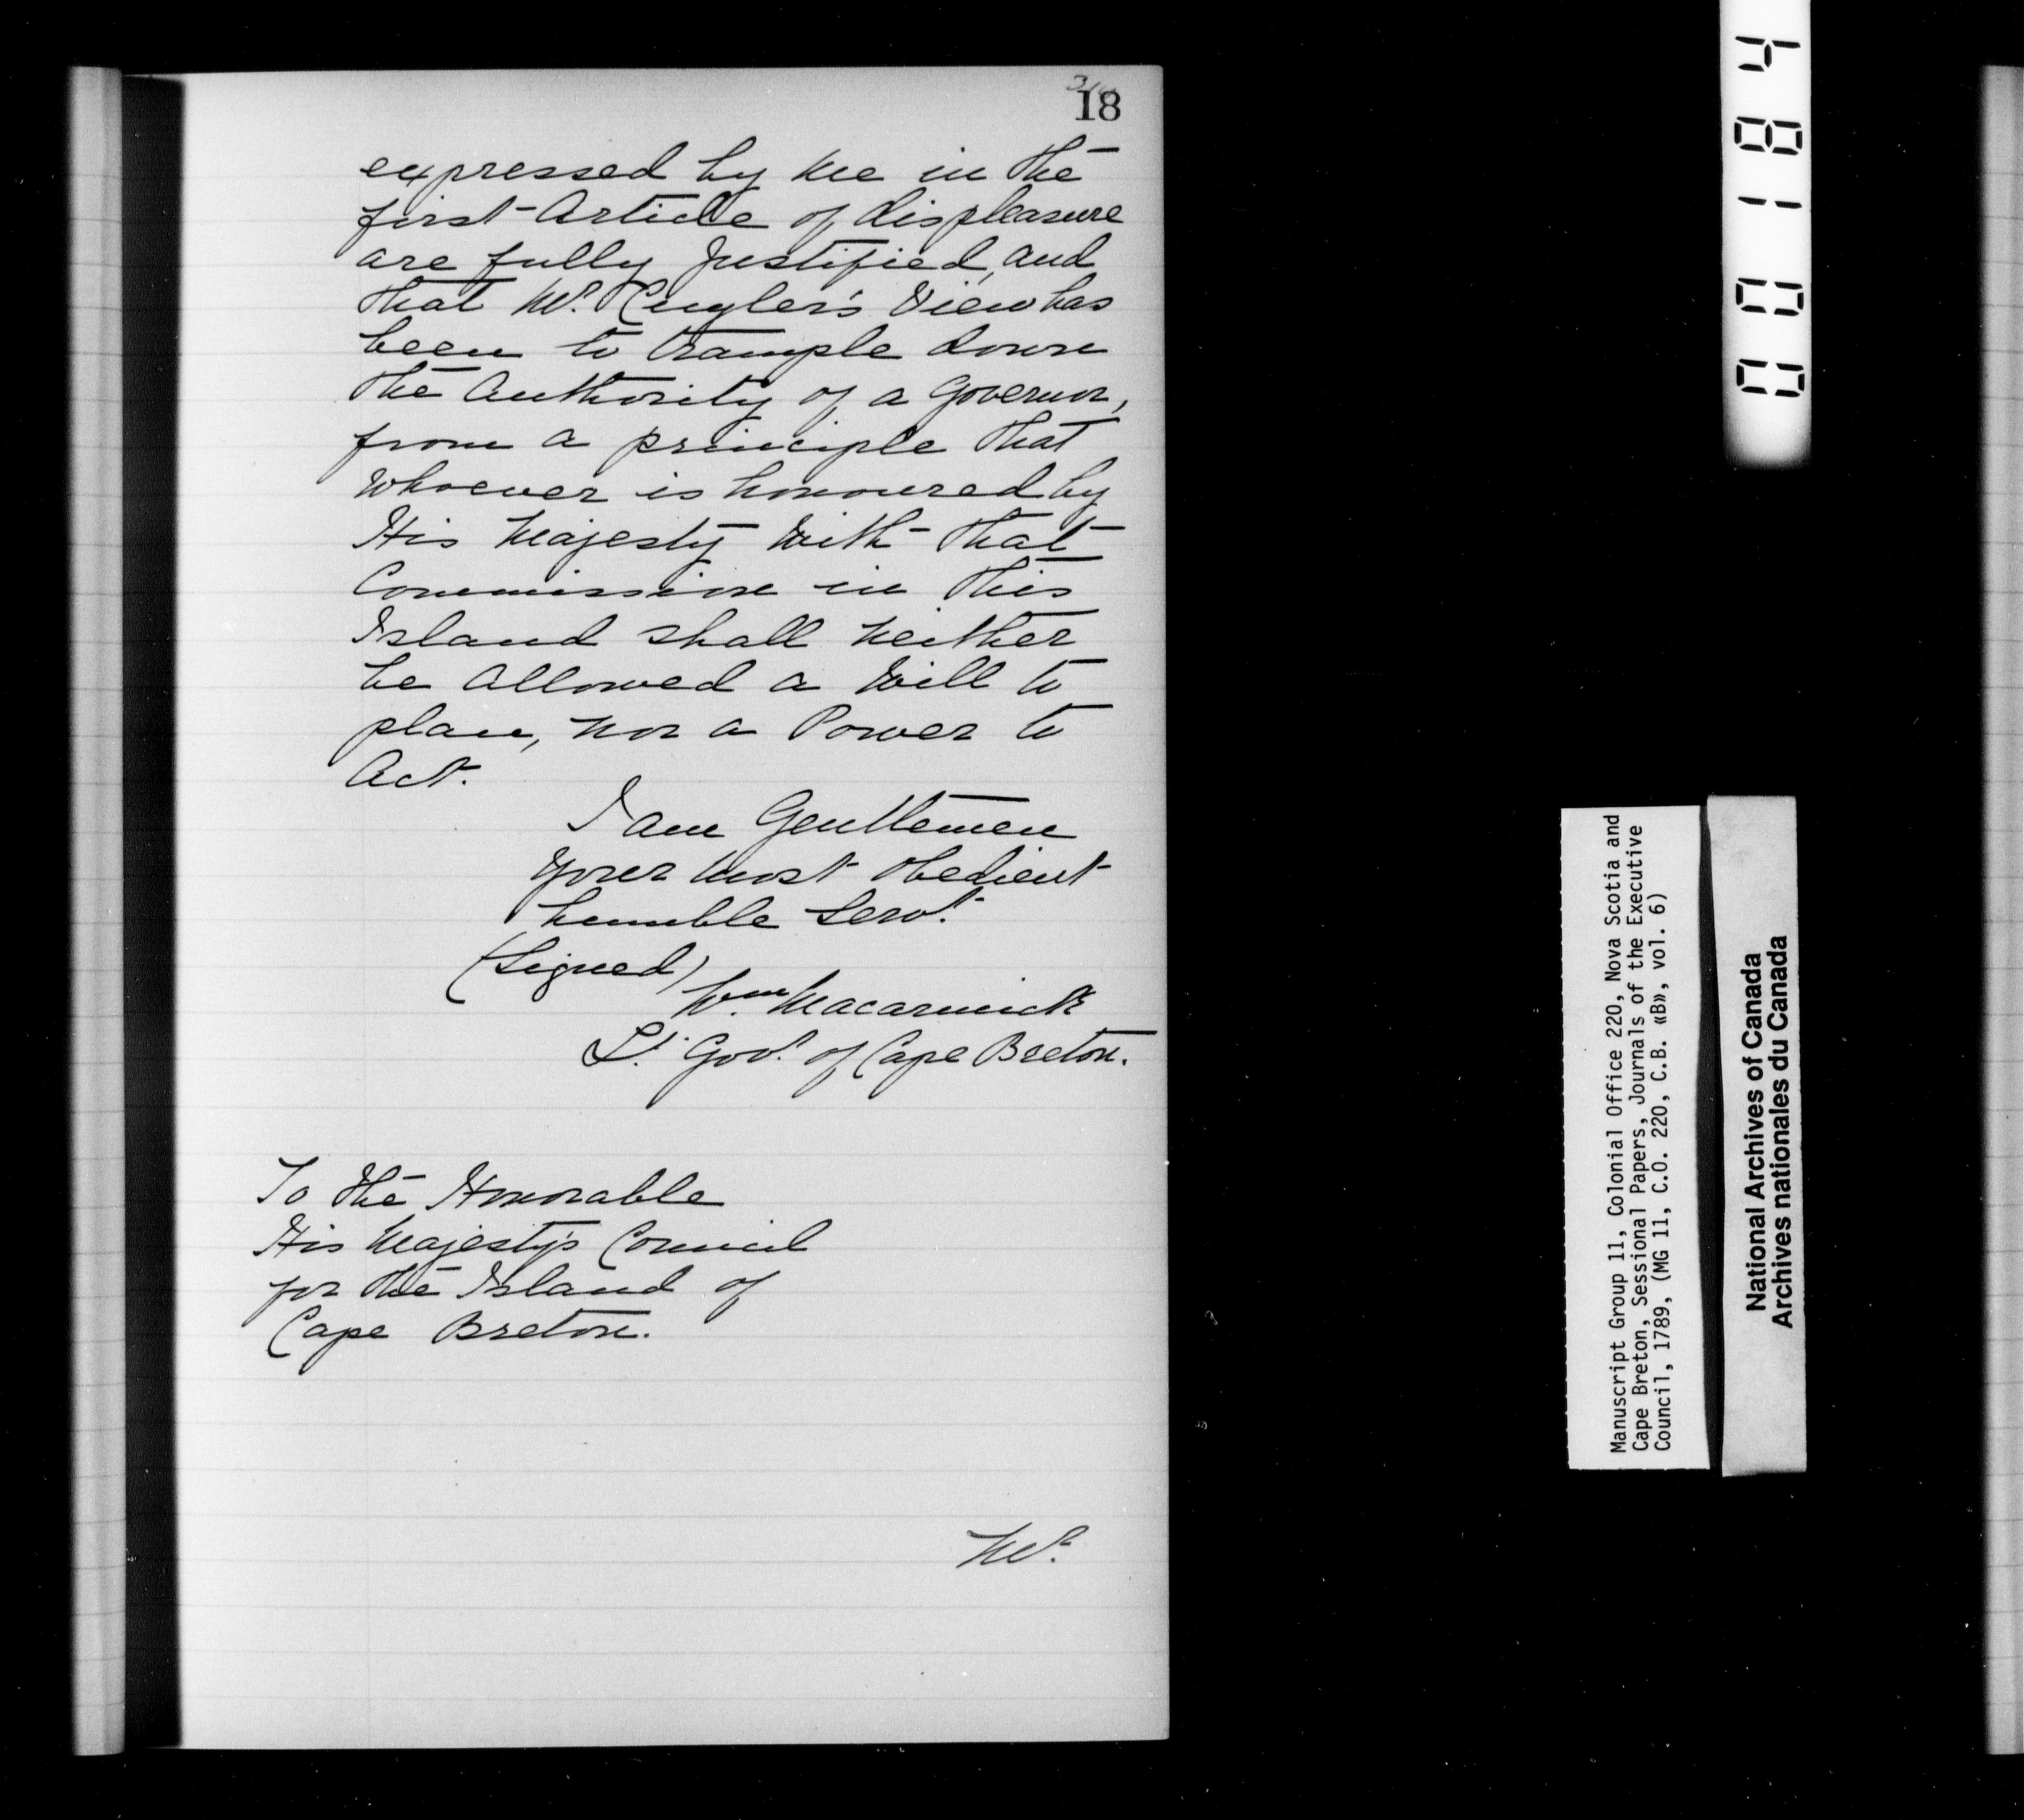 18
expressed by me in the
first Article of displeasure
are fully Justified, and
that Mr. Cuyler's View has
been to trample down
the Authority of a Governor,
from a principle that
whoever is honoured by
His Majesty with that
Commission in this
Island shall neither
be allowed a Will to
plan, nor a Power to
Act.
I am Gentlemen
Your most obedient
humble Servt.
(Signed)
Wm. Macarmick
Lt. Govr. of Cape Breton.
To the Honorable
His Majesty's Council
for the Island of
Cape Breton.
Mr.
000184
Manuscript Group 11, Colonial Office 220, Nova Scotia and
Cape Breton, Sessional Papers, Journals of the Executive
Council, 1789, (MG 11, C.O. 220, C.B. «B», vol. 6)
National Archives of Canada
Archives nationales du Canada